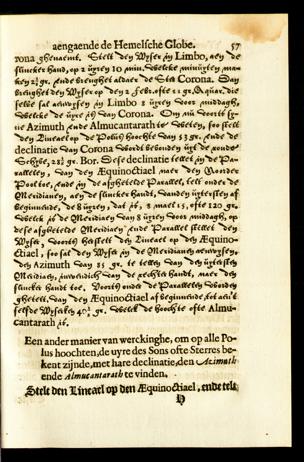 aengaende de Hemelsche Globe. 57
rona ghenaemt. Stelt den Wyser in Limbo, aen de
slincker hand, op 2 uyren 10 min. welcke minuyten, ma-
ken 2½ gr. ende brenght aldaer de Ster Corona. Dan
brenghet den Wyser op den 2 Febr. ofte 22 gr. Aquar. die
selve sal aenwysen in Limbo 8 uyren voor middagh,
welcke de uyre is van Corona. Om nu voorts sy-
ne Azimuth ende Almucantarath te weten, soo stelt
den Lineael op de Polus hoochte van 53 gr. ende de
declinatie van Corona wordt bevonden uyt de ronde
Schyve, 28½ gr. Bor. Dese declinatie tellet in de Pa-
rallelen, van den Æquinoctiael naer den Noorder
Pool toe, ende in de afghetelde Parallel, telt onde de
Meridianen, aen de slincker handt, van den uytersten af
beginnende, de 8 uyren, dat is, 8 mael 15, ofte 120 gr.
welck is de Meridiaen van 8 uyren voor middagh, op
dese afghetelde Meridiaen ende Parallel stellet den
Wyser, voorts herstelt den Lineael op den Æquino-
ctiael, soo sal den Wyser in de Meridianen aenwysen,
den Azimuth van 85 gr. te tellen van den uytersten
Meridiaen, inwendich van de rechter handt, naer den
slincker handt toe. Voorts onde de Parallelen worden
ghetelt, van den Æquinoctiael af beginnende, tot aen de
selfde Wyser 40½ gr. welck de hoochte ofte Almu-
cantarath is.
Een ander manier van werckinghe, om op alle Po-
lus hoochten, de uyre des Sons ofte Sterres be-
kent zijnde, met hare declinatie, den Azimuth
ende Almucantarath te vinden.
Stelt den Lineael op den Æquinoctiael, ende telt
H